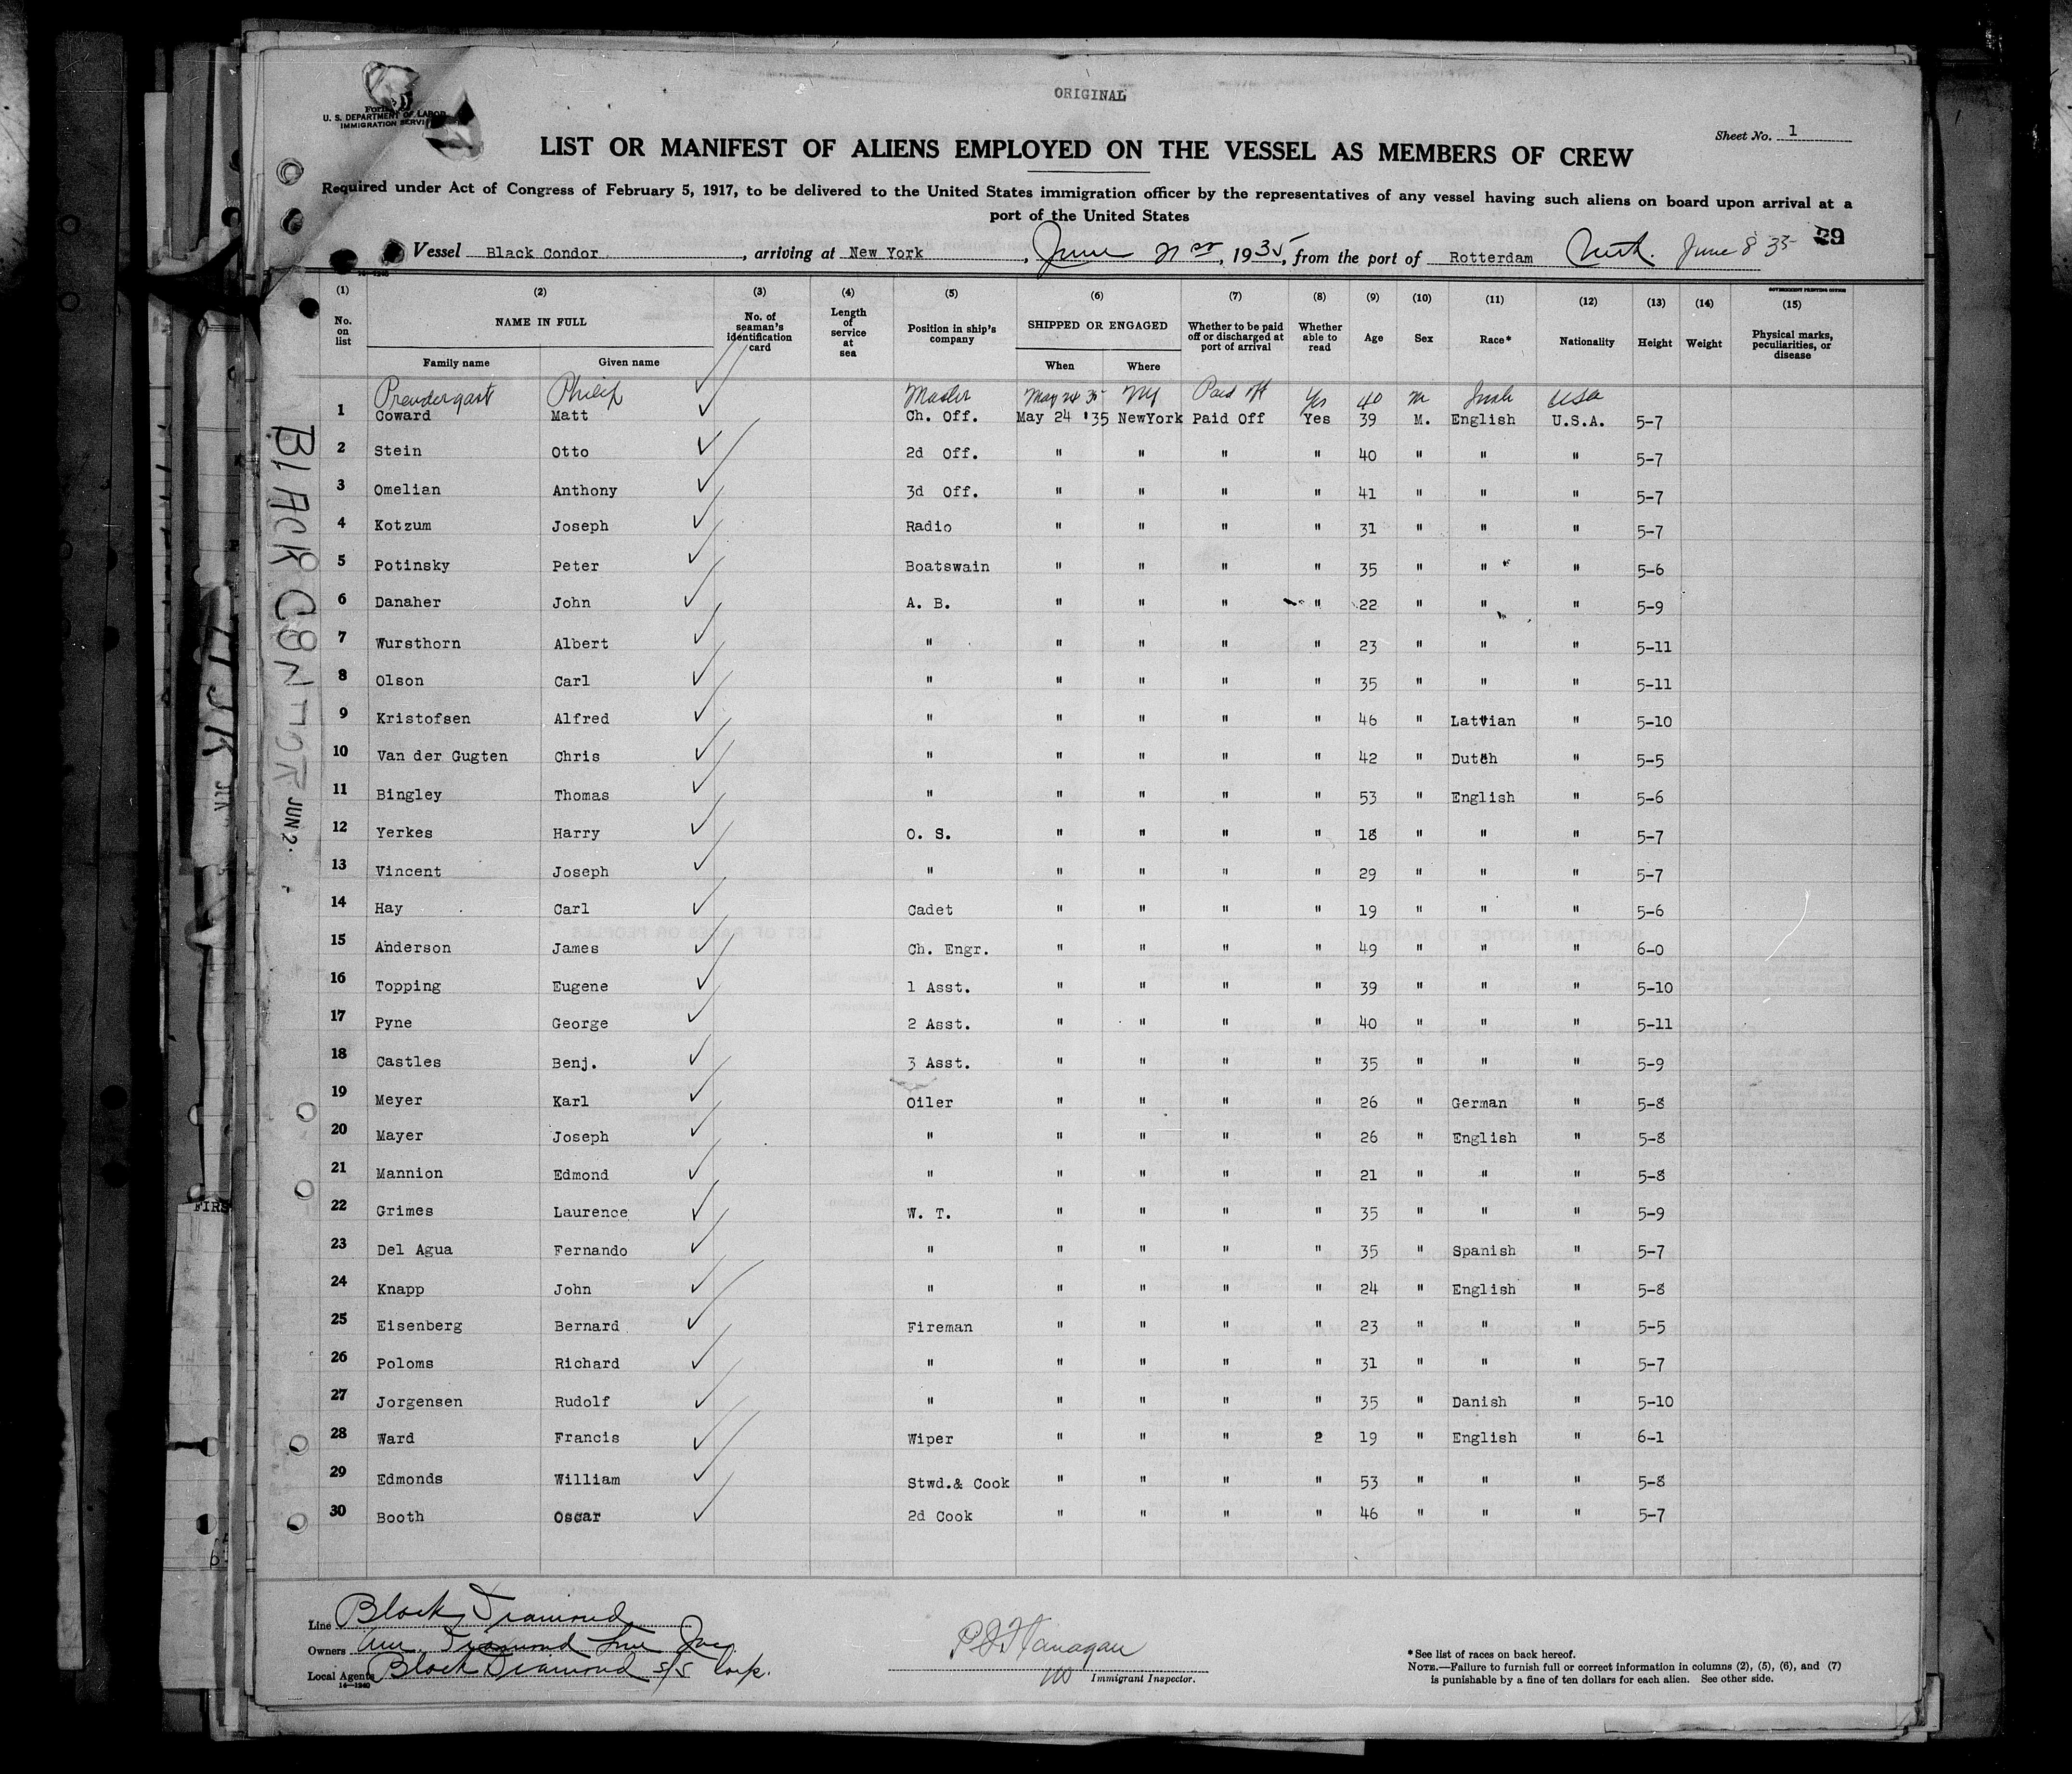 ORIGINAL
U. S. DEPARTMENT OF LABOR
IMMIGRATION SERVI
Sheet No. 1
LIST OR MANIFEST OF ALIENS EMPLOYED ON THE VESSEL AS MEMBERS OF CREW
Required under Act of Congress of February 5, 1917, to be delivered to the United States immigration officer by the representatives of any vessel having such aliens on board upon arrival at a
port of the United States
Vessel Black Condor, arriving at New York, June 21st, 1935, from the port of Rotterdam Neth. June 8 35
(1) (2) (3) (4) (5) (6) (7) (8) (9) (10) (11) (12) (13) (14) (15)
No. on list NAME IN FULL Family name Given name No. of seaman's identification card Length of service at sea Position in ship's company SHIPPED OR ENGAGED When Where Whether to be paid off or discharged at port of arrival Whether able to read Age Sex Race* Nationality Height Weight Physical marks, peculiarities, or disease
Prendergast Philip ✓ Master May 24 35 NY Paid off Yes 40 m Irish USA
1 Coward Matt ✓ Ch. Off. May 24 '35 NewYork Paid Off Yes 39 M. English U.S.A. 5-7
2 Stein Otto ✓ 2d Off. " " " " 40 " " " 5-7
3 Omelian Anthony ✓ 3d Off. " " " " 41 " " " 5-7
4 Kotzum Joseph ✓ Radio " " " " 31 " " " 5-7
5 Potinsky Peter ✓ Boatswain " " " " 35 " " " 5-6
6 Danaher John ✓ A. B. " " " " 22 " " " 5-9
7 Wursthorn Albert ✓ " " " " " 23 " " " 5-11
8 Olson Carl ✓ " " " " " 35 " " " 5-11
9 Kristofsen Alfred ✓ " " " " " 46 " Latvian " 5-10
10 Van der Gugten Chris ✓ " " " " " 42 " Dutch " 5-5
11 Bingley Thomas ✓ " " " " " 53 " English " 5-6
12 Yerkes Harry ✓ O. S. " " " " 18 " " " 5-7
13 Vincent Joseph ✓ " " " " " 29 " " " 5-7
14 Hay Carl ✓ Cadet " " " " 19 " " " 5-6
15 Anderson James ✓ Ch. Engr. " " " " 49 " " " 6-0
16 Topping Eugene ✓ 1 Asst. " " " " 39 " " " 5-10
17 Pyne George ✓ 2 Asst. " " " " 40 " " " 5-11
18 Castles Benj. ✓ 3 Asst. " " " " 35 " " " 5-9
19 Meyer Karl ✓ Oiler " " " " 26 " German " 5-8
20 Mayer Joseph ✓ " " " " " 26 " English " 5-8
21 Mannion Edmond ✓ " " " " " 21 " " " 5-8
22 Grimes Laurence ✓ W. T. " " " " 35 " " " 5-9
23 Del Agua Fernando ✓ " " " " " 35 " Spanish " 5-7
24 Knapp John ✓ " " " " " 24 " English " 5-8
25 Eisenberg Bernard ✓ Fireman " " " " 23 " " " 5-5
26 Poloms Richard ✓ " " " " " 31 " " " 5-7
27 Jorgensen Rudolf ✓ " " " " " 35 " Danish " 5-10
28 Ward Francis ✓ Wiper " " " 2 19 " English " 6-1
29 Edmonds William ✓ Stwd.& Cook " " " " 53 " " " 5-8
30 Booth Oscar ✓ 2d Cook " " " " 46 " " " 5-7
BLACK CONDOR JUN 2
FIRS
Line Black Diamond
Owners Am. Diamond Line Inc
Local Agents Black Diamond S/S Corp.
14—1240
P J Flanagan
Immigrant Inspector.
* See list of races on back hereof.
NOTE.—Failure to furnish full or correct information in columns (2), (5), (6), and (7)
is punishable by a fine of ten dollars for each alien. See other side.